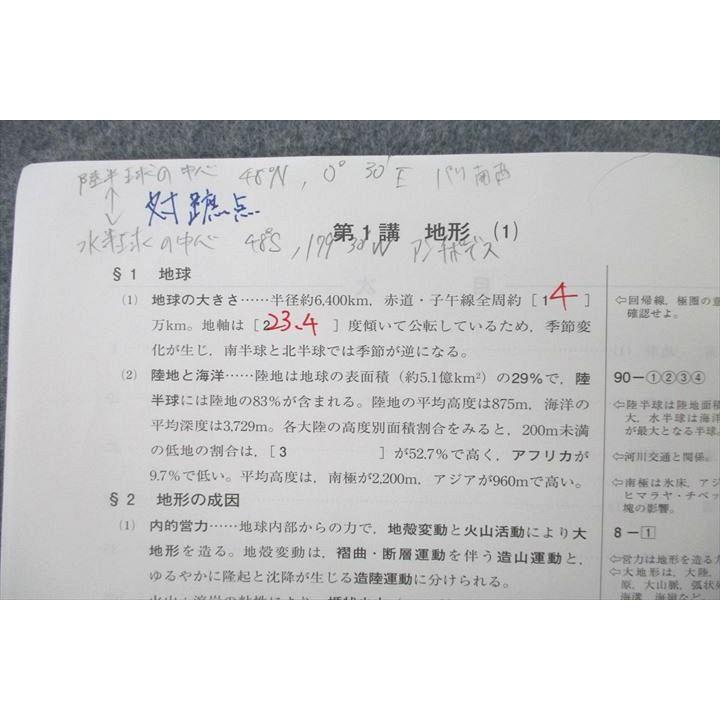 陸半球の中心 48°N, 0°30'E パリ南西
対蹠点
水半球の中心 48°S, 179°30'W アンチポデス
第1講 地形 (1)
§1 地球
(1) 地球の大きさ……半径約6,400km,赤道・子午線全周約[1 4 ]
万km。地軸は[2 23.4 ]度傾いて公転しているため,季節変
化が生じ,南半球と北半球では季節が逆になる。
(2) 陸地と海洋……陸地は地球の表面積(約5.1億km²)の29%で,陸
半球には陸地の83%が含まれる。陸地の平均高度は875m,海洋の
平均深度は3,729m。各大陸の高度別面積割合をみると,200m未満
の低地の割合は,[3 ]が52.7%で高く,アフリカが
9.7%で低い。平均高度は,南極が2,200m,アジアが960mで高い。
§2 地形の成因
(1) 内的営力……地球内部からの力で,地殻変動と火山活動により大
地形を造る。地殻変動は,褶曲・断層運動を伴う造山運動と,
ゆるやかに隆起と沈降が生じる造陸運動に分けられる。
⇦回帰線,極圏の意
確認せよ。
90-①②③④
⇦陸半球は陸地面積
大,水半球は海洋
が最大となる半球。
⇦河川交通と関係。
⇦南極は氷床,アジ
ヒマラヤ・チベッ
塊の影響。
8-1
⇦営力は地形を造る力
⇦大地形は,大陸,
原,大山脈,弧状列
海溝,海嶺など。